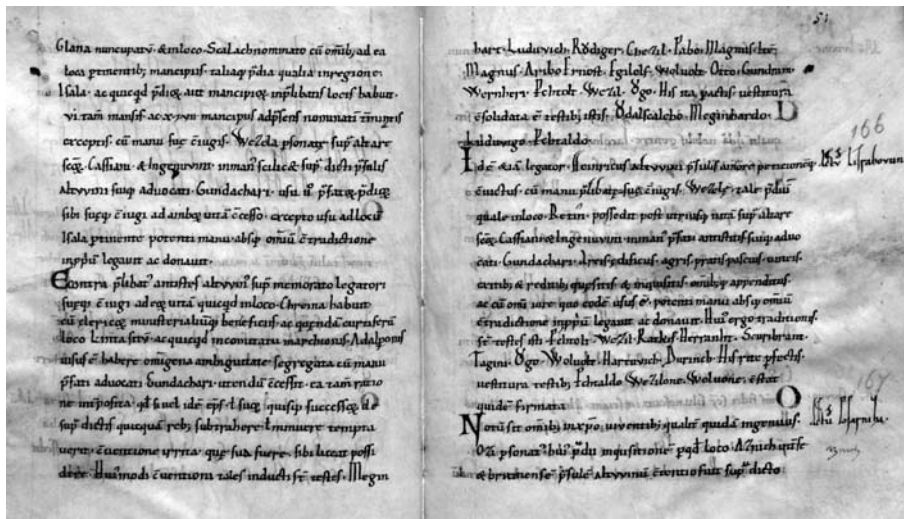 Glana nuncupatũ & inloco Scalach nominato cũ omĩb; ad ea
loca ptinentib; mancipiis taliaq; p̃dia qualia inregione
Isala ac quicqd p̃diorũ aut mancipiorũ inp̃libatis locis habuit
vi tam̃ mansis ac x mancipiis adp̃sens nominati
exceptis cũ manu suę c̃iugis Wezala psonate sup̃ altare
sc̃orũ Cassiani & Ingenuvini in manũ scilic& sup̃ dicti p̃sulis
altvvini suiq; advocati Gundachari usu p̃fatorũ p̃diorũ
sibi suęq; c̃iugi ad amborũ uitã c̃cesso excepto usu ad locũ
Isala ptinente potenti manu absq; om̃iũ c̃tradictione
inpp̃riũ legavit ac donavit
Econtra p̃libat' antistes altvvin' sup̃ memorato legatori
suęq; c̃iugi ad eorũ uitã quicqd inloco Chreina habuit
cũ clericorũ ministerialiũq; beneficiis ac quendã curtiferũ
loco Linta sitũ ac quicqd incomitatu marchionis Adalponis
uisus ẽ habere om̃igena ambiguitate segregata cũ manu
p̃fati advocati Gundachari utendũ c̃cessit ea tam̃ ratio
ne imposita qd si uel idẽ ep̃s l suorũ quispiã successorũ de
sup̃ dictis quicquã reb; subtrahere l minuere tempta
uerit c̃uentione irrita quę sua fuere sibi liceat possi
dere Hui'modi c̃uentioni tales inducti st̃ testes Megin
51
hart Ludvvich Růdiger Chezil Pabo Magnus itẽ
Magnus Aribo Ernost Egilolf Woluolt Otto Gundram
Wernheri Pehtolt Wezil Ůgo His ita pactis uestitura
c̃solidata ẽ testib; istis Ůdalscalcho Meginhardo
Luiduvigo Pehtaldo
166
Idẽ &iã legator Heinricus altvvini p̃sulis amore petitioneq;
c̃uictus cũ manu p̃libatę suę c̃iugis Wezalę tale p̃diũ
quale inloco Retin possedit post utriusq; uitã sup̃ altare
sc̃orũ Cassiani & Ingenuvini in manũ p̃fati antistitis suiq; advo
cati Gundachari areis ędificiis agris pratis pascuis siluis
exitib; & reditib; quęsitis & inquisitis omĩb; q; appenditiis
ac cũ om̃i iure quo eodẽ usus ẽ potenti manu absq; om̃iũ
c̃tradictione inpp̃riũ legavit ac donavit Hui' ergo traditionis
st̃ testes isti Pehtolt Wezil Ratkis Herrant Scurbrant
Tagini Ůgo Woluolt Hartvvich Durinch His rite p̃fectis
uestitura testib; Pehtaldo Wezilone Woluone c̃stat
quidẽ firmata
167
Notũ sit omĩb; in xpo uiventib; qualit̃ quidã ingenuus
Ozi psonat' hui' p̃dii inquisitionẽ pqd̃ loco Aznich
& brixinense p̃sulẽ altvvinũ c̃tentio fuit sup̃ dicto